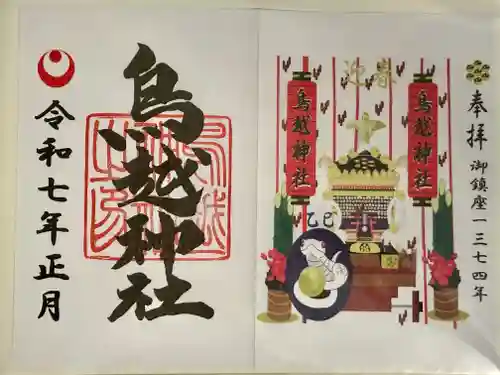 奉拝
御鎮座一三七四年
迎春
鳥越神社
鳥越神社
乙巳
鳥越神社
令和七年正月